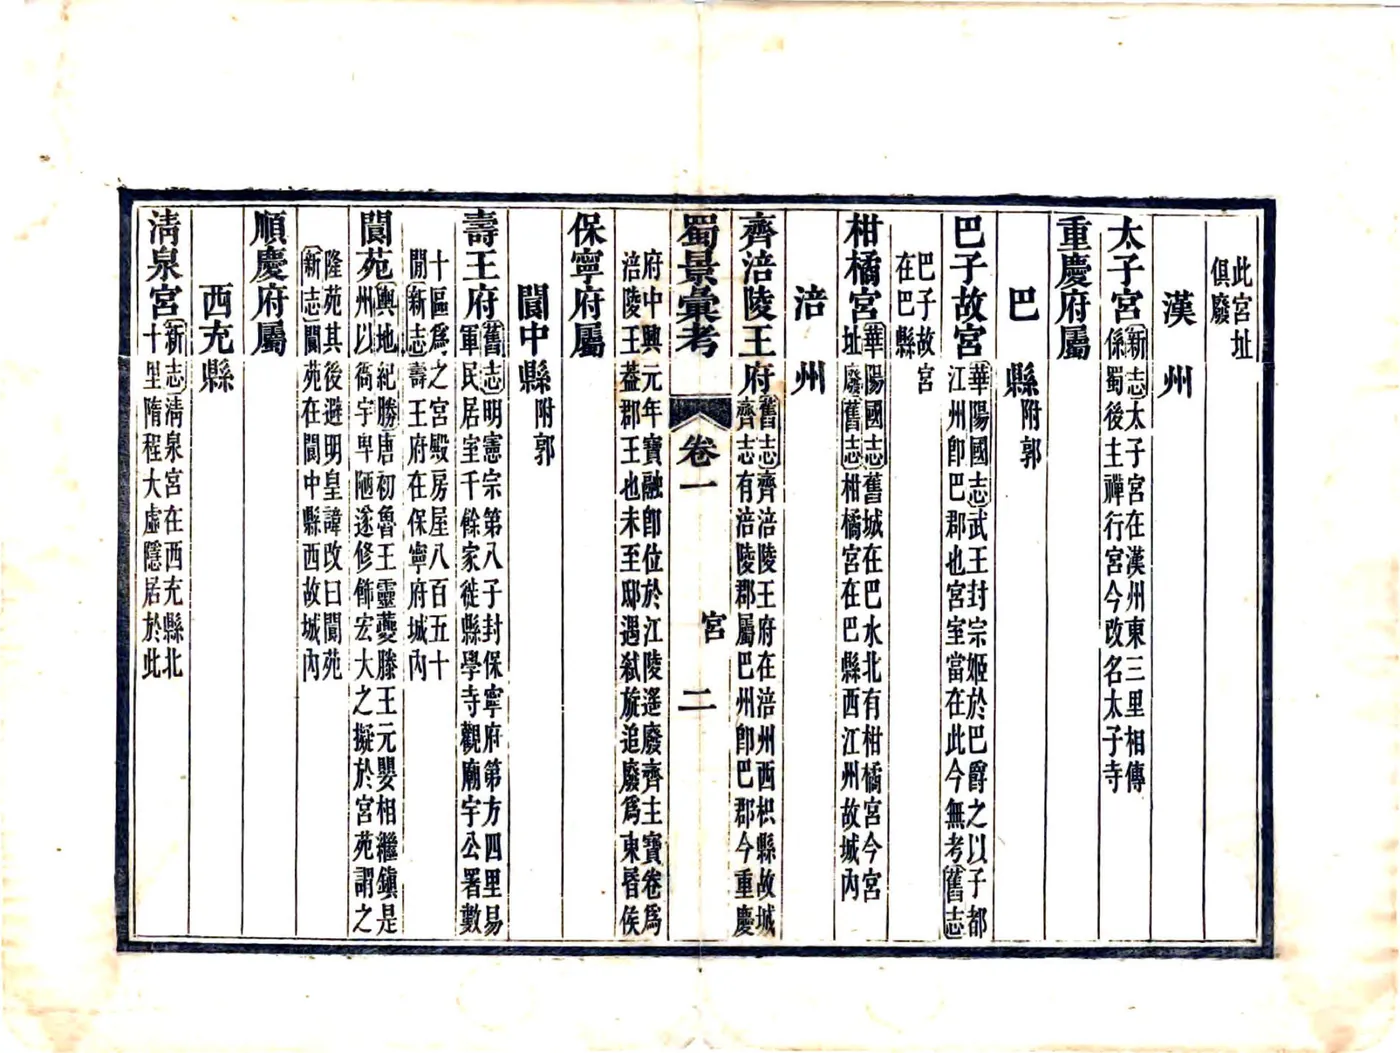 此宮址
俱廢
漢州
太子宮
新志太子宮在漢州東三里相傳
係蜀後主禪行宮今改名太子寺
重慶府屬
巴縣附郭
巴子故宮
華陽國志武王封宗姬於巴爵之以子都
江州卽巴郡也宮室當在此今無考舊志
巴子故宮
在巴縣
柑橘宮
華陽國志舊城在巴水北有柑橘宮今宮
址廢舊志柑橘宮在巴縣西江州故城內
涪州
齊涪陵王府
舊志齊涪陵王府在涪州西枳縣故城
齊志有涪陵郡屬巴州卽巴郡今重慶
蜀景彙考
卷一
宮
二
府中興元年寶融卽位於江陵遙廢齊主寶卷爲
涪陵王蓋郡王也未至邸遇弒旋追廢爲東昏侯
保寧府屬
閬中縣附郭
壽王府
舊志明憲宗第八子封保寧府第方四里易
軍民居室千餘家徙縣學寺觀廟宇公署數
十區爲之宮殿房屋八百五十
間新志壽王府在保寧府城內
閬苑
輿地紀勝唐初魯王靈夔滕王元嬰相繼鎮是
州以衙宇卑陋遂修飾宏大之擬於宮苑謂之
隆苑其後避明皇諱改曰閬苑
新志閬苑在閬中縣西故城內
順慶府屬
西充縣
清泉宮
新志清泉宮在西充縣北
十里隋程大虛隱居於此